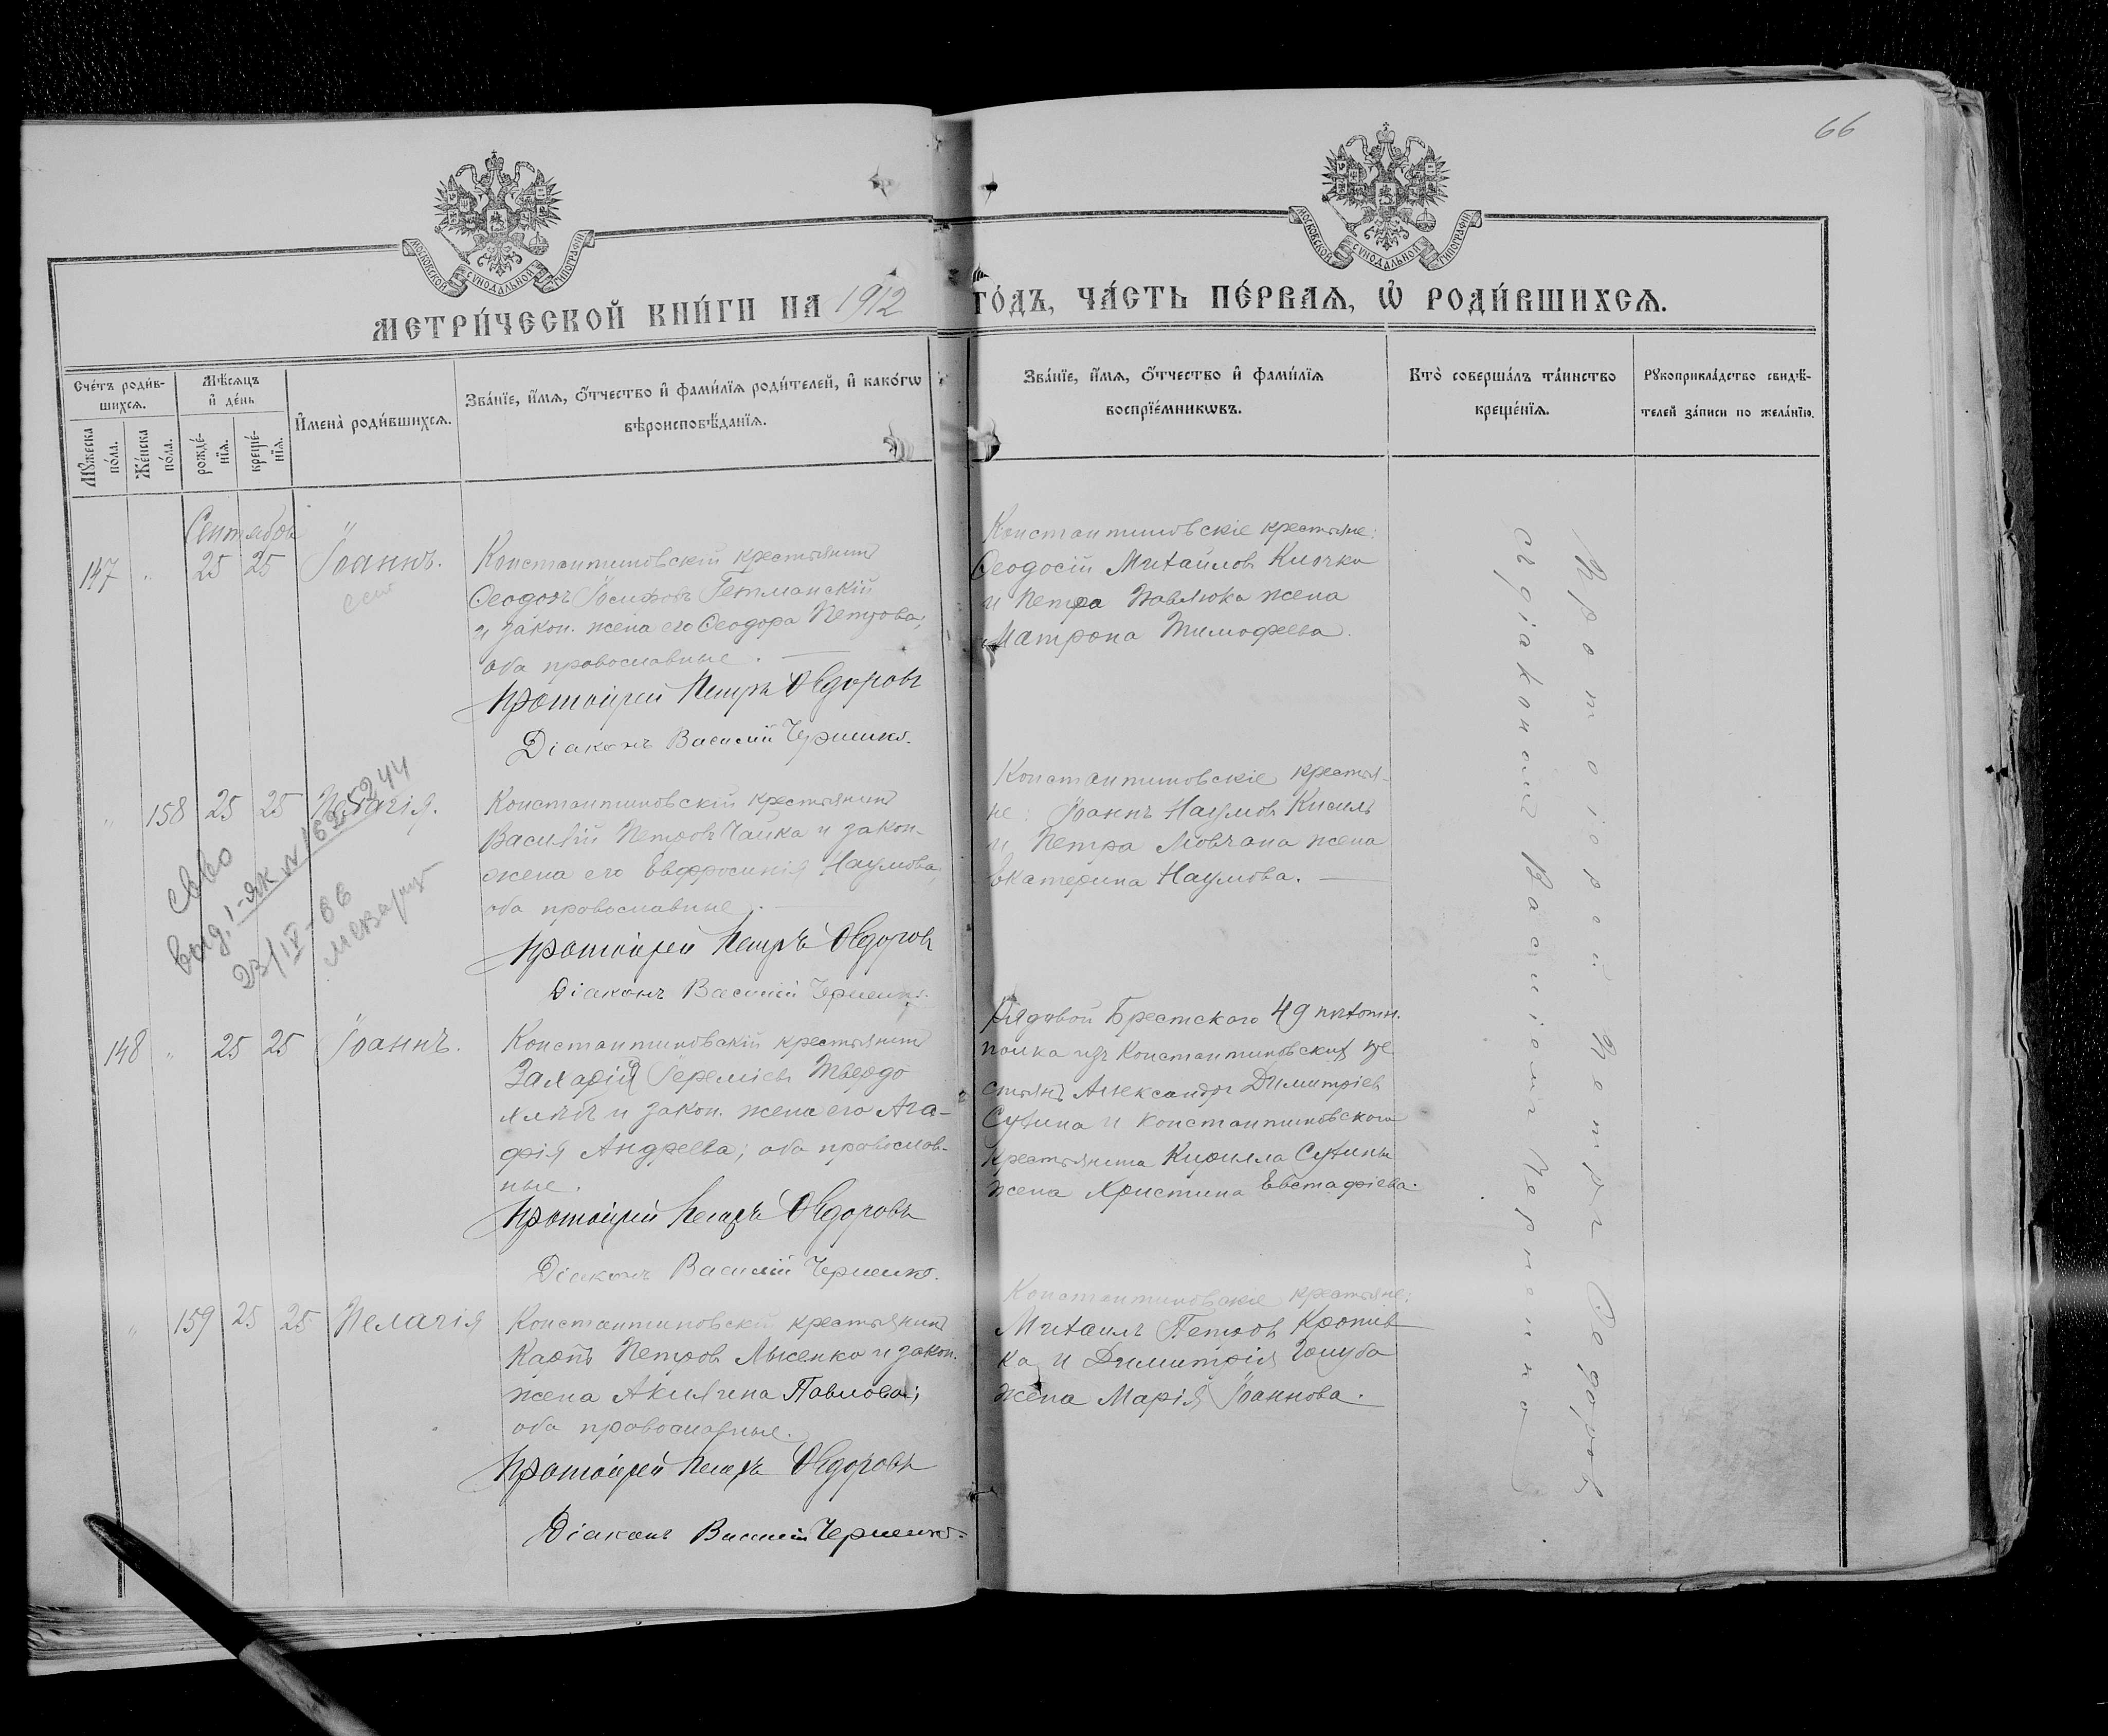 66
МОСКОВСКОЙ СѴНОДАЛЬНОЙ ТИПОГРАФІИ
МОСКОВСКОЙ СѴНОДАЛЬНОЙ ТИПОГРАФІИ
МЕТРИ́ЧЕСКОЙ КНИ́ГИ НА 1912 ГО́ДЪ, ЧА́СТЬ ПЕ́РВАѦ, Ѡ҆ РОДИ́ВШИХСѦ.
Сче́тъ роди́в-
шихсѧ.
Мѣ́сѧцъ
и҆ де́нь
Мꙋ́жеска
по́ла.
Же́нска
по́ла.
рожде́-
нїѧ.
креще́-
нїѧ.
И҆мена̀ роди́вшихсѧ.
Зва́нїе, и҆́мѧ, ѻ҆́тчество и҆ фами́лїѧ роди́телей, и҆ како́гѡ
вѣроисповѣ́данїѧ.
Зва́нїе, и҆́мѧ, ѻ҆́тчество и҆ фами́лїѧ
воспрїе́мникѡвъ.
Кто̀ соверша́лъ та́инство
креще́нїѧ.
Рꙋкоприкла́дство свидѣ́-
телей за́писи по жела́нїю.
Сентябрь
147 " 25 25 Іоаннъ.
Константиновскій крестьянинъ
Ѳеодоръ Іосифовъ Гетманскій
и закон. жена его Ѳеодора Петрова;
оба православные.
Протоіерей Петръ Ѳедоровъ
Діаконъ Василій Черненко.
Константиновскіе крестьяне:
Ѳеодосій Михайловъ Клочко
и Петра Павлюка жена
Матрона Тимофеева.
" 158 25 25 Пелагія.
Константиновскій крестьянинъ
Василій Петровъ Чайка и закон.
жена его Евфросинія Наумова;
оба православные.
Протоіерей Петръ Ѳедоровъ
Діаконъ Василій Черненко.
Константиновскіе крестья-
не: Іоаннъ Наумовъ Кисиль
и Петра Мовчана жена
Екатерина Наумова.
св-во
23/IV-66
148 " 25 25 Іоаннъ.
Константиновскій крестьянинъ
Захарій Іереміевъ Твердо
хлѣбъ и закон. жена его Ага-
фія Андреева; оба православ-
ные.
Протоіерей Петръ Ѳедоровъ
Діаконъ Василій Черненко.
Рядовой Брестскаго 49 пѣхотн.
полка изъ Константиновскихъ кре
стьянъ Александръ Димитріевъ
Сухина и Константиновскаго
крестьянина Кирилла Сухины
жена Христина Евстафіева.
" 159 25 25 Пелагія
Константиновскій крестьянинъ
Карпъ Петровъ Лысенко и закон.
жена Акилина Павлова;
оба православные.
Протоіерей Петръ Ѳедоровъ
Діаконъ Василій Черненко.
Константиновскіе крестьяне:
Михаилъ Петровъ Кропив
ка и Димитрія Голуба
жена Марія Іоаннова.
Протоіерей Петръ Ѳедоровъ
съ діакономъ Василіемъ Черненко